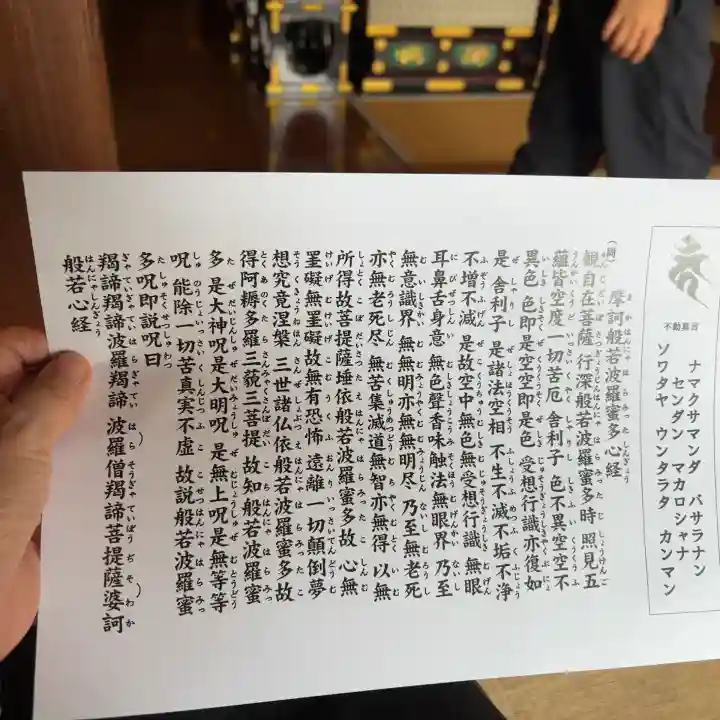 不動真言
ナマクサマンダ バサラナン
センダン マカロシャナ
ソワタヤ ウンタラタ カンマン
摩訶般若波羅蜜多心経
観自在菩薩 行深般若波羅蜜多時 照見五
蘊皆空度一切苦厄 舎利子 色不異空空不
異色 色即是空空即是色 受想行識亦復如
是 舎利子 是諸法空相 不生不滅不垢不浄
不増不減 是故空中無色無受想行識 無眼
耳鼻舌身意 無色声香味触法無眼界 乃至
無意識界 無無明亦無無明尽 乃至無老死
亦無老死尽 無苦集滅道無智亦無得 以無
所得故菩提薩埵依般若波羅蜜多故 心無
罣礙無罣礙故無有恐怖 遠離一切顛倒夢
想究竟涅槃 三世諸仏依般若波羅蜜多故
得阿耨多羅三藐三菩提 故知般若波羅蜜
多 是大神呪 是大明呪 是無上呪 是無等等
呪 能除一切苦真実不虚 故説般若波羅蜜
多呪即説呪曰
羯諦羯諦波羅羯諦 波羅僧羯諦菩提薩婆訶
般若心経